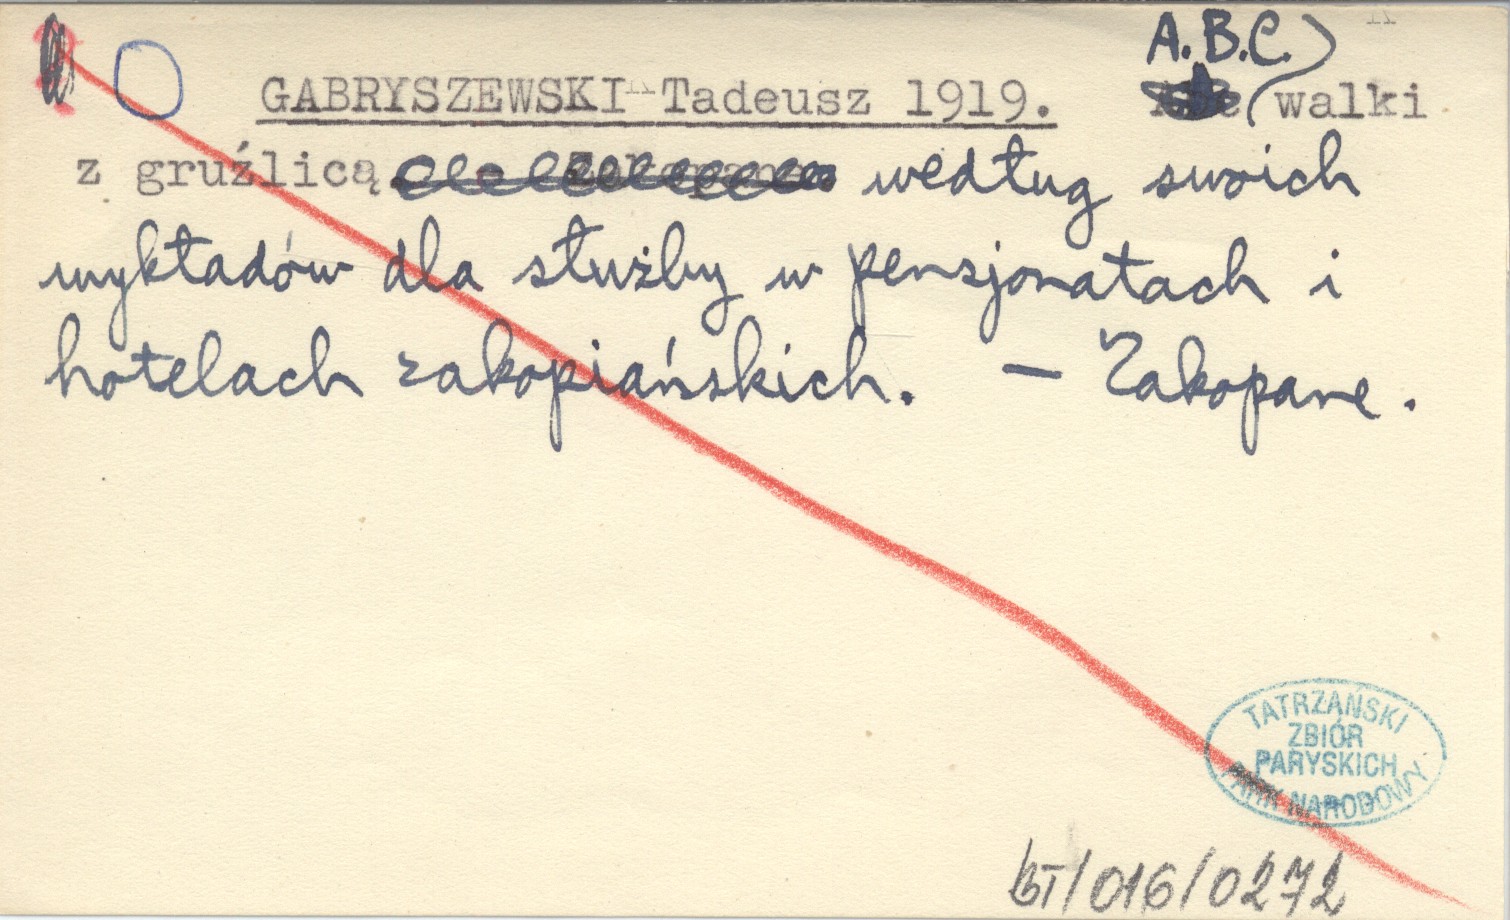 A.B.C.
GABRYSZEWSKI Tadeusz 1919. walki
z gruźlicą według swoich
wykładów dla służby w pensjonatach i
hotelach zakopiańskich. — Zakopane.
TATRZAŃSKI
ZBIÓR
PARYSKICH
PARK NARODOWY
BT/016/0272